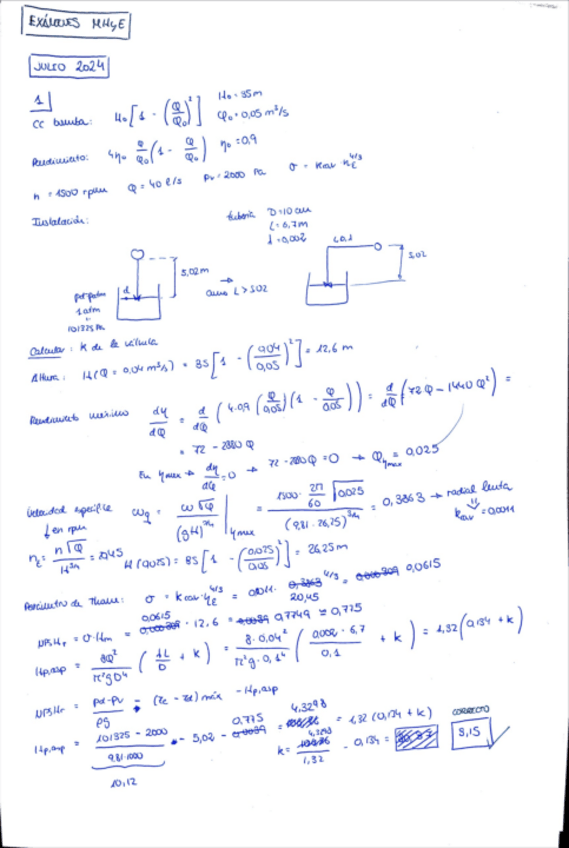 EXÁMENES MHyE
JULIO 2024
1
CC bomba: H₀ [1 - (Q/Q₀)²] H₀ = 35 m
Q₀ = 0,05 m³/s
Rendimiento: 4η₀ Q/Q₀ (1 - Q/Q₀) η₀ = 0,9
n = 1500 rpm Q = 40 l/s Pv = 2000 Pa σ = kcav n_ε^4/3
Instalación: tubería D = 10 cm
L = 6,7 m
λ = 0,002
5,02 m
L 0,1
5,02
como L > 5,02
1 atm
101325 Pa
Calcular: K de la válvula
Altura: H(Q = 0,04 m³/s) = 35 [1 - (0,04/0,05)²] = 12,6 m
Rendimiento máximo dη/dQ = d/dQ (4·0,9 (Q/0,05)(1 - Q/0,05)) = d/dQ (72Q - 1440Q²) =
= 72 - 2880 Q
En ηmax → dη/dQ = 0 → 72 - 2880Q = 0 → Qηmax = 0,025
Velocidad específica ωq = ω√Q/(gH)^3/4 |ηmax = 1500 · 2π/60 √0,025/(9,81 · 26,25)^3/4 = 0,3863 → radial lenta
en rpm
kcav = 0,0011
n_ε = n√Q/H^3/4 = 20,45 H(0,025) = 35 [1 - (0,025/0,05)²] = 26,25 m
Parámetro de Thoma: σ = kcav · n_ε^4/3 = 0,0011 · 20,45^4/3 = 0,0615
NPSHr = σ·Hm = 0,0615 · 12,6 = 0,7749 ≅ 0,775
Hp,asp = 8Q²/π²gD⁴ (λL/D + k) = 8·0,04²/π²g·0,1⁴ (0,002 · 6,7/0,1 + k) = 1,32 (0,134 + k)
NPSHr = pd-pv/ρg - (ze - zd) máx - Hp,asp
Hp,asp = 101325 - 2000/9,81·1000 - 5,02 - 0,775 = 4,3298 = 1,32 (0,134 + k)
10,12
k = 4,3298/1,32 - 0,134 = 3,15
CORRECTO